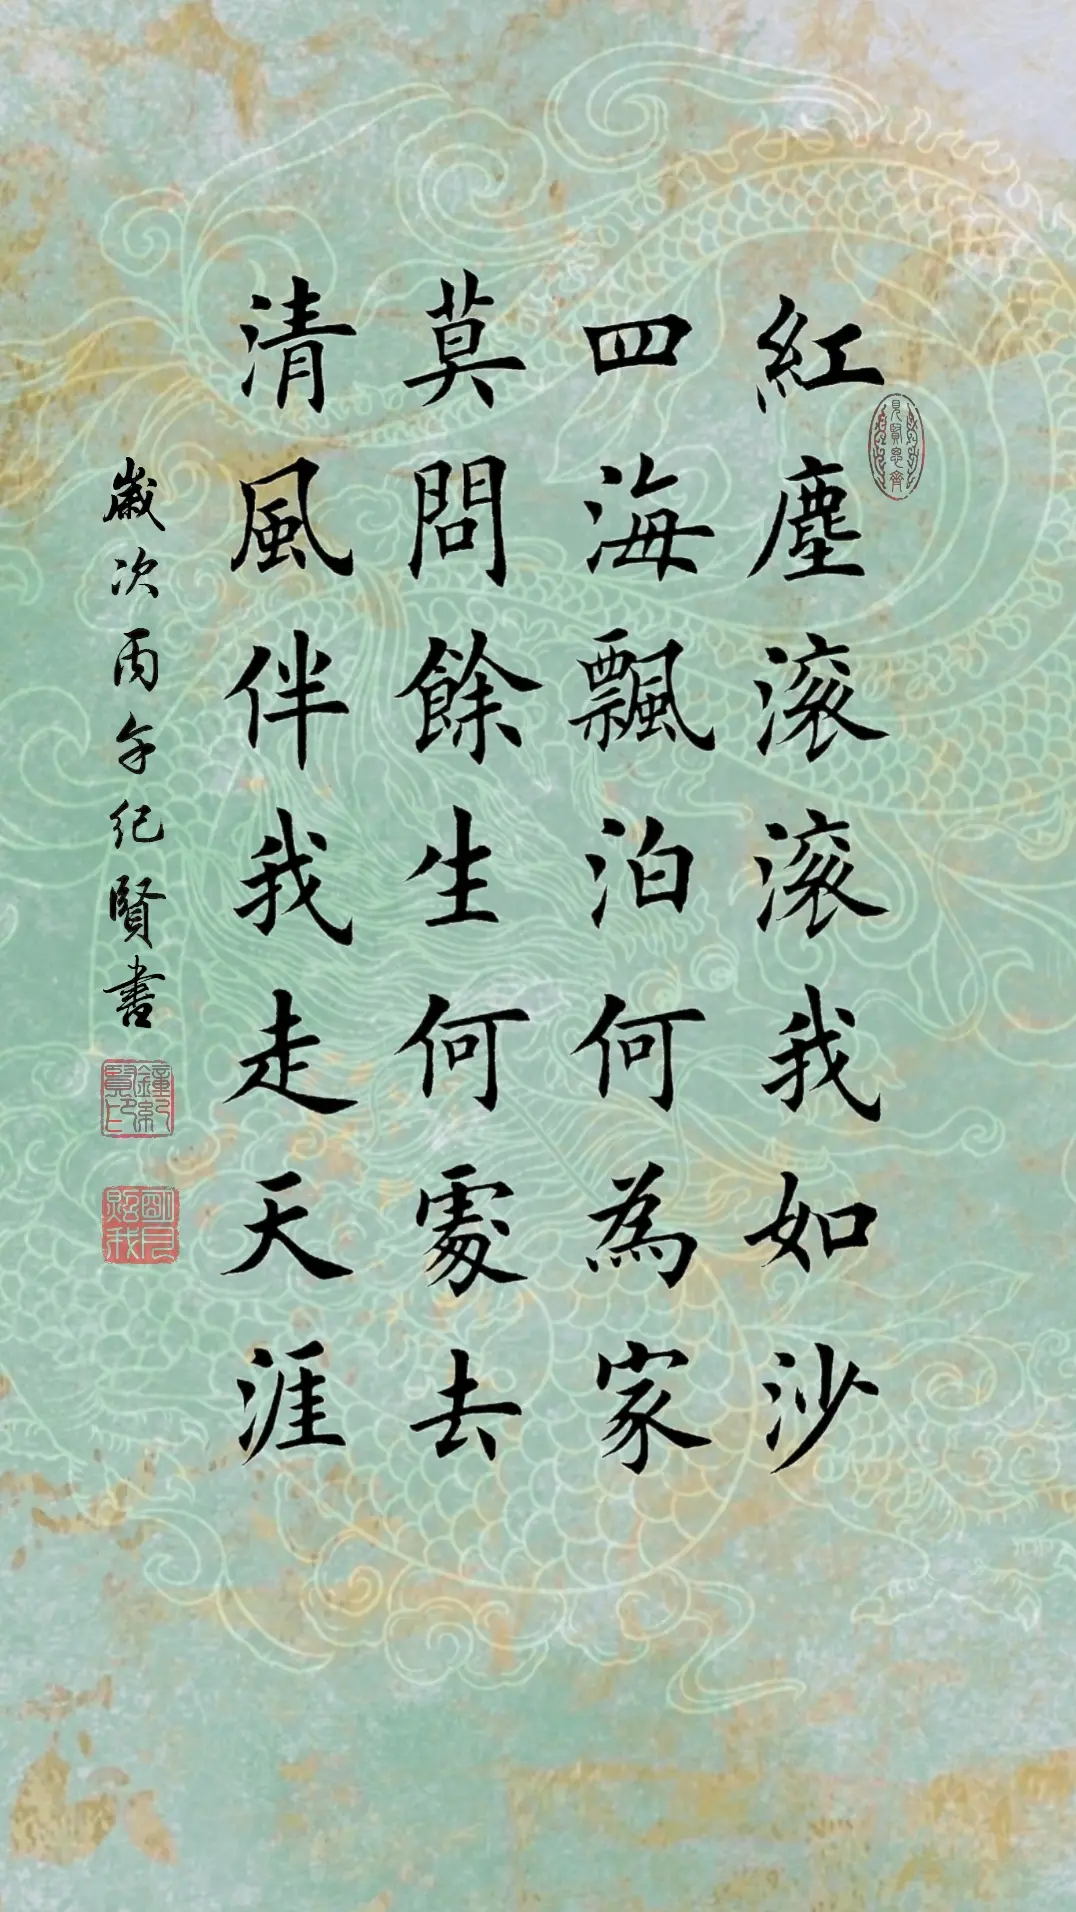 紅塵滾滾我如沙
四海飄泊何為家
莫問餘生何處去
清風伴我走天涯
歲次丙午紀賢書
見賢思齊
鐘紀賢印